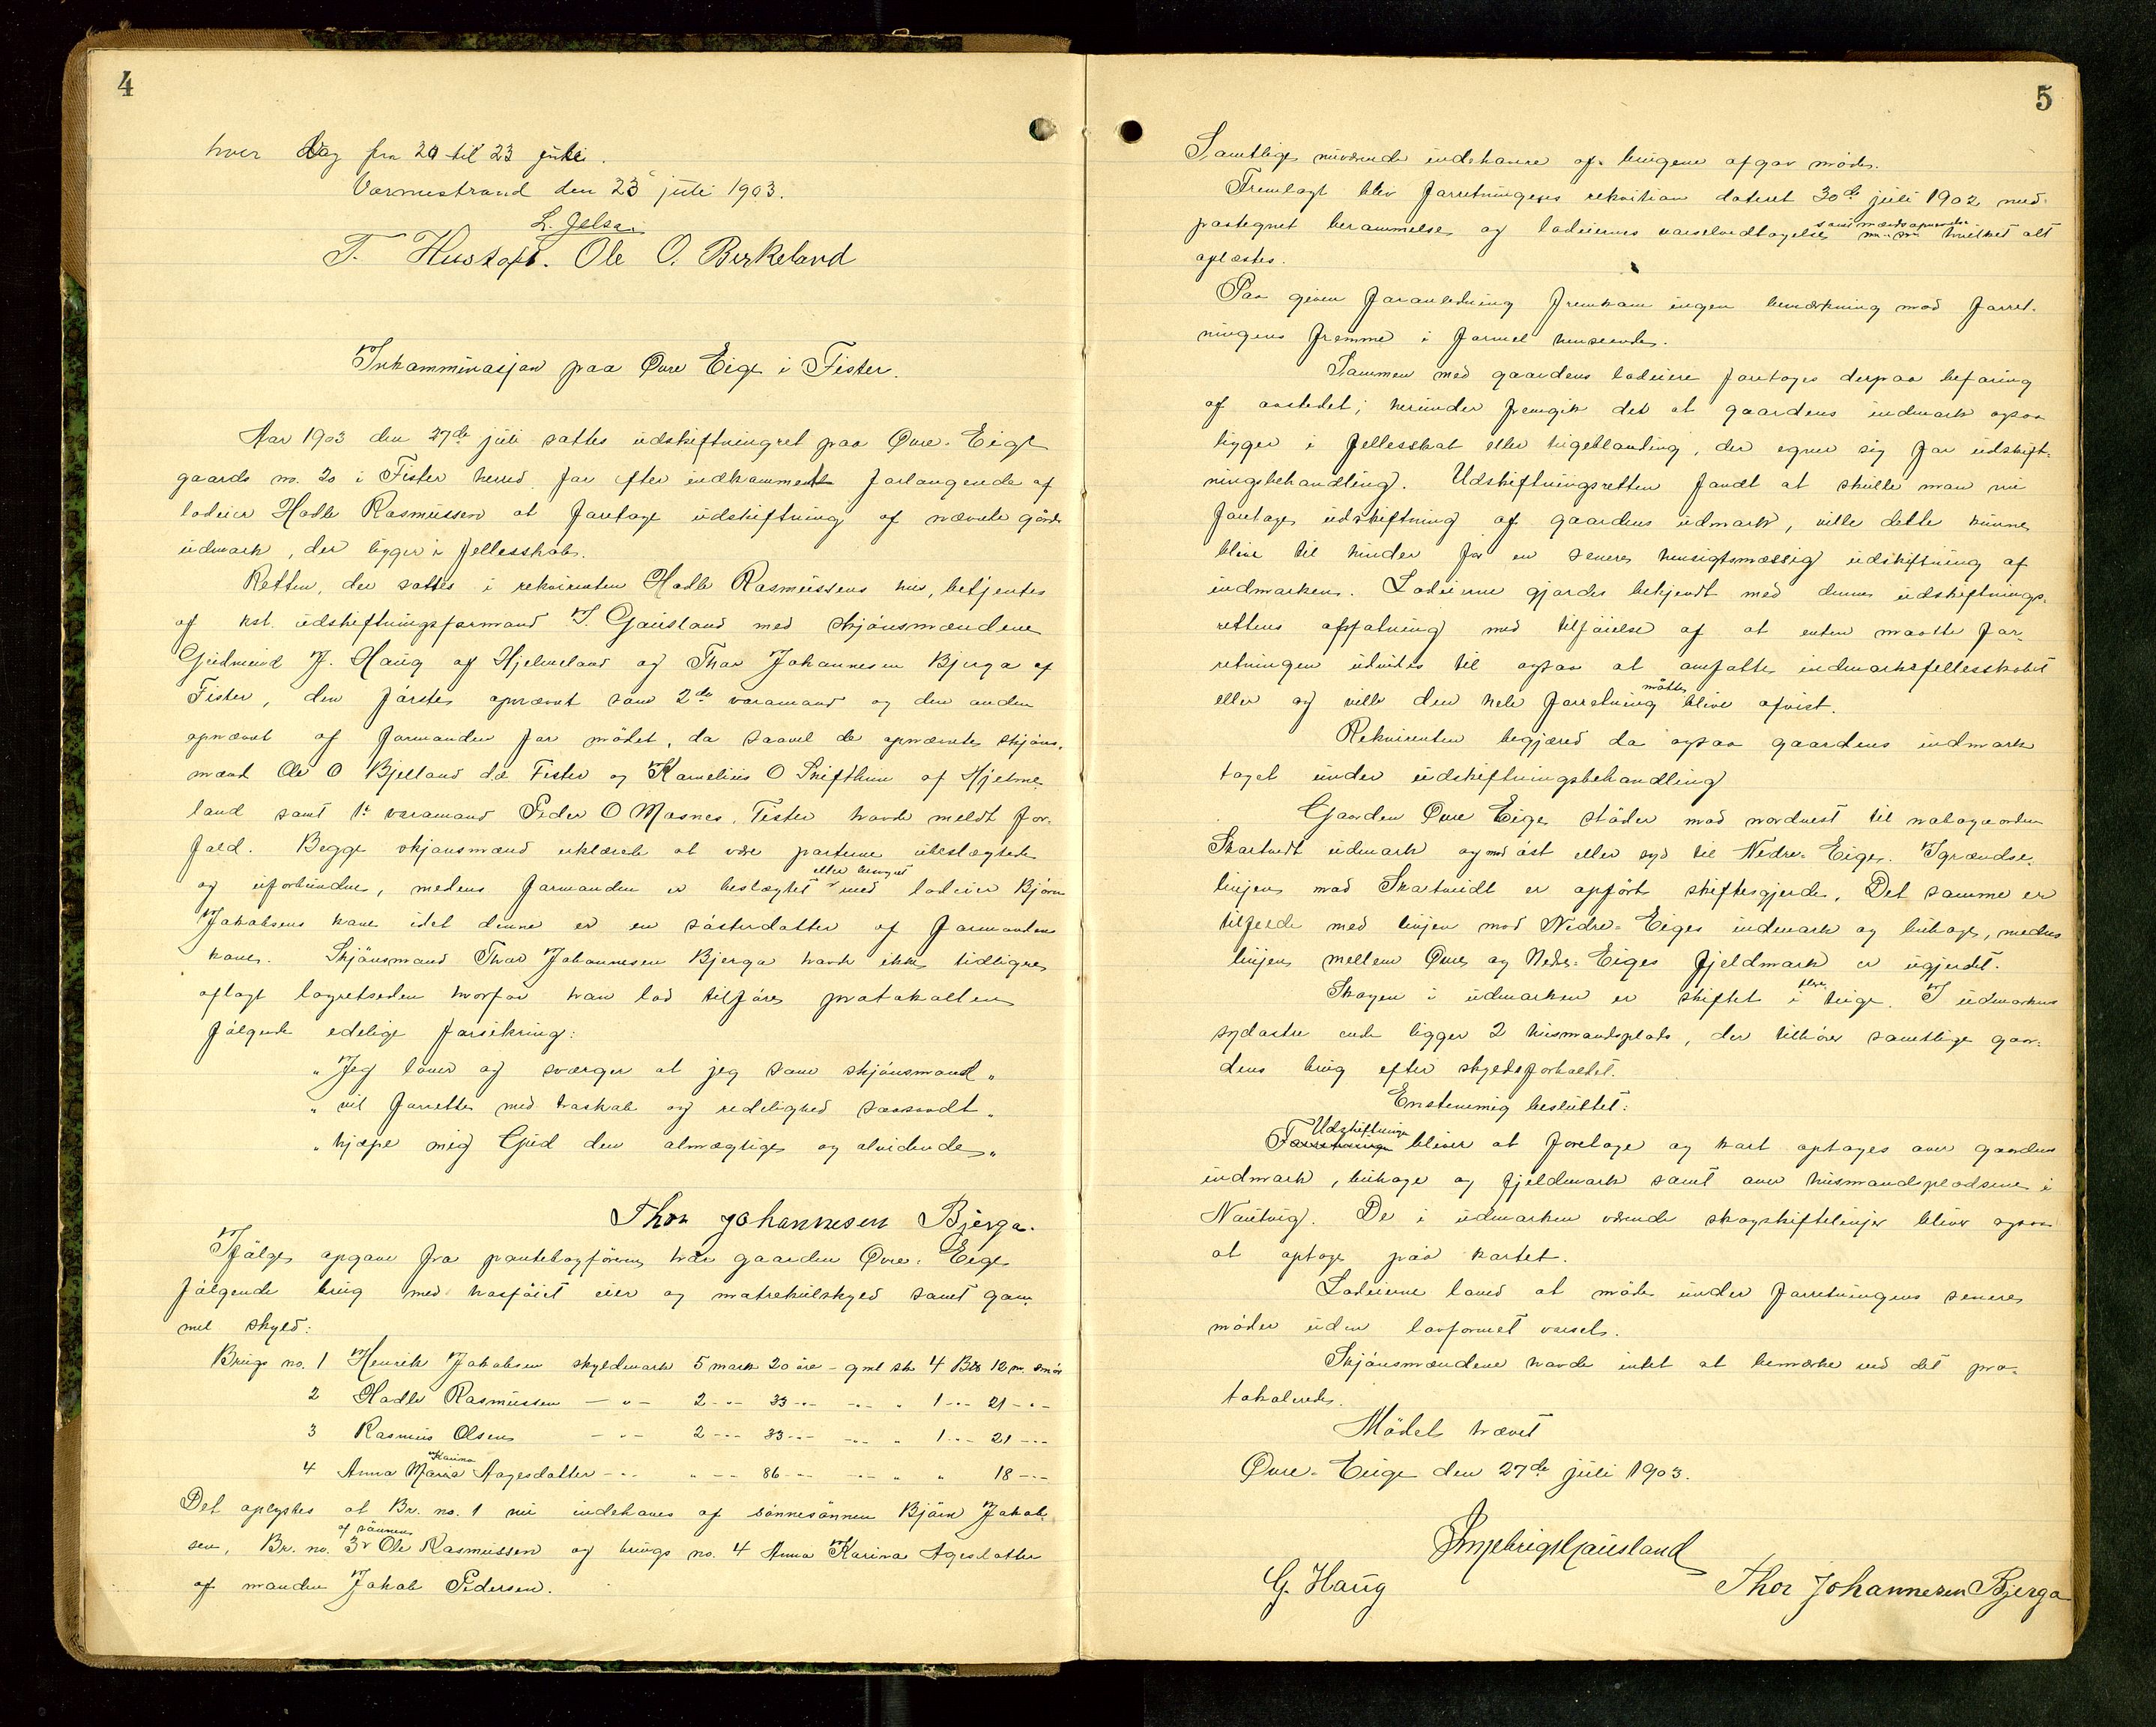 4
hver dag fra 20 til 23 juli.
Vormestrand den 23 juli 1903.
L. Jelsa
T. Hustoft. Ole O. Birkeland
Inkamminasjon paa Øvre Eige i Fister.
Aar 1903 den 27de juli sattes udskiftningret paa Øvre-Eige
gaards no. 20 i Fister herred for efter indkommente forlangende af
lodeier Hadle Rasmussen at foretage udskiftning af nævnte gårds
udmark, der ligger i fellesskab.
Retten, der sattes i rekvirenten Hadle Rasmussens hus, betjentes
af kst. udskiftningsformand I. Gausland med skjönsmændene
Gudmund J. Haug af Hjelmeland og Thor Johannesen Bjerga af
Fister, den förste opnævnt som 2de varamand og den anden
opnævnt af formanden for mödet, da saavel de opnævnte skjöns-
mænd Ole O Bjelland de Fister og Kornelius O Skifthun af Hjelme-
land samt 1ste varamand Peder O Masnes, Fister havde meldt for-
fald. Begge skjönsmænd erklærede at være parterne ubeslægtede
og uforbundne, medens formanden er beslægtet eller besvogret med lodeier Björn
Jakobsens kone idet denne er en sösterdatter af formandens
kone. Skjönsmand Thor Johannesen Bjerga havde ikke tidligere
aflagt lagretseden hvorfor han lod tilföre protokollen
fölgende edelige forsikring:
"Jeg lover og sværger at jeg som skjönsmand"
"vil forrette med troskab og redelighed saasandt"
"hjælpe mig Gud den almægtige og alvidende"
Thor Johannesen Bjerga.
Ifölge opgave fra pantebogföreren har gaarden Övre-Eige
fölgende brug med hosföiet eier og matrikulskyld samt gam-
mel skyld:
Brugs no. 1 Henrik Jakobsen skyldmark 5 mark 20 öre - gml sk 4 Bis 12 m. smör
2 Hadle Rasmussen - " - 2 -"- 33 -"- -"- " 1 -"- 21 -"-
3 Rasmus Olsen - " - 2 -"- 33 -"- -"- " 1 -"- 21 -"-
4 Anna Maria Karina Aagesdatter -"- " -"- 86 -"- -"- " " 18 -"-
Det oplystes at Br. no. 1 nu indehaves af sönnesönnen Björn Jakob-
sen, Br. no. 3 af sönnen Ole Rasmussen og brugs no. 4 Anna Karina Agesdatter
af manden Jakob Pedersen.
5
Samtlige nuværende indehavere af brugene afgav möde.
Fremlagt blev forretningens rekvition dateret 30de juli 1902 med
paategnet berammelse og lodeiernes varselvedtagelse samt mændsopnævnelse hvilket alt
oplæstes.
Paa given foranledning fremkom ingen bemærkning mod forret-
ningens fremme i formel henseende.
Sammen med gaardens lodeiere foretoges derpaa befaring
af aastedet; herunder fremgik det at gaardens indmark ogsaa
ligger i fellesskab eller teigeblanding, der egner sig for udskift-
ningsbehandling. Udskiftningsretten fandt at skulle man nu
foretage udskiftning af gaardens udmark, ville dette kunne
blive til hinder for en senere hensigtsmæssig udskiftning af
indmarken. Lodeierne gjordes bekjendt med denne udskiftnings-
rettens opfatning med tilföielse af at enten maatte for-
retningen udvides til ogsaa at omfatte indmarksfellesskabet
eller og ville den hele forretning måtte blive afvist.
Rekvirenten begjæred da ogsaa gaardens indmark
taget under udskiftningsbehandling
Gaarden Øvre Eige støder mod nordvest til nabogaarden
Skartvedt udmark og mod öst eller syd til Nedre-Eige. I grændse-
linjen mod Skartveidt er opfört skiftesgjerde. Det samme er
tilfelde med linjen mod Nedre-Eiges indmark og buhage, medens
linjen mellem Övre og Nedre-Eiges fjeldmark er ugjerdet.
Skogen i udmarken er skiftet i flere teige. I udmarkens
sydöstre ende ligger 2 husmandsplads, der tilhörer samtlige gaar-
dens brug efter skyldsforholdet.
Enstemmig besluttet:
Forretningen Udskiftningen bliver at foretage og kart optages over gaardens
indmark, buhage og fjeldmark samt over husmandspladsene i
Nautvig. De i udmarken værende skogskiftelinjer bliver ogsaa
at optage paa kartet.
Lodeierne loved at möde under forretningens senere
möder uden lovformet varsel.
Skjönsmændene havde intet at bemærke ved det pro-
tokolerede.
Mödet hævet
Övre-Eige den 27de juli 1903.
Ingebrigt Gausland
G. Haug
Thor Johannesen Bjerga